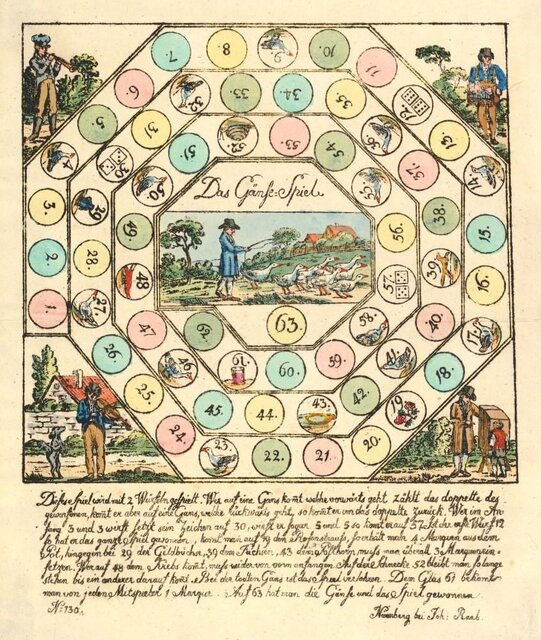 Das Gänse-Spiel
1.
2.
3.
4.
5.
6.
7.
8.
9.
10.
11.
12.
13.
14.
15.
16.
17.
18.
19.
20.
21.
22.
23.
24.
25.
26.
27.
28.
29.
30.
31.
32.
33.
34.
35.
36.
37.
38.
39.
40.
41.
42.
43.
44.
45.
46.
47.
48.
49.
50.
51.
52.
53.
54.
55.
56.
57.
58.
59.
60.
61.
62.
63.
Dieses Spiel wird mit 2 Würfeln gespielt. Wer auf eine Gans komt welche vorwärts geht zählt das doppelte des
geworfenen, komt er aber auf eine Gans, welche rückwärts geht, so komt er um das doppelte zurück. Wer im An-
fang 3 und 3 wirft setzt sein Zeichen auf 30, wirft er sogar 5 und 5 so komt er auf 57. Ist der erste Wurf 12
so hat er das ganze Spiel gewonnen, komt man auf 19 den Rosenstrauss, so erhält man 4 Marquen aus dem
Pot, hingegen bei 29 der Geldbüchs, 39 dem Füchsen, 43 dem muss man überall 3 Marquen ein-
setzen. Wer auf 48 dem Krebs komt, muss wieder von vorn anfangen. Auf der Schnecke 52 bleibt man so lange
stehen bis ein anderer darauf komt. Bei der Gans ist das Spiel verlohren. Dem Glas 61 bekomt
man von jedem Mitspieler 1 Marque. Auf 63 hat man die Gänse und das Spiel gewonnen.
No: 130.
Nürnberg bei Joh: Raab.